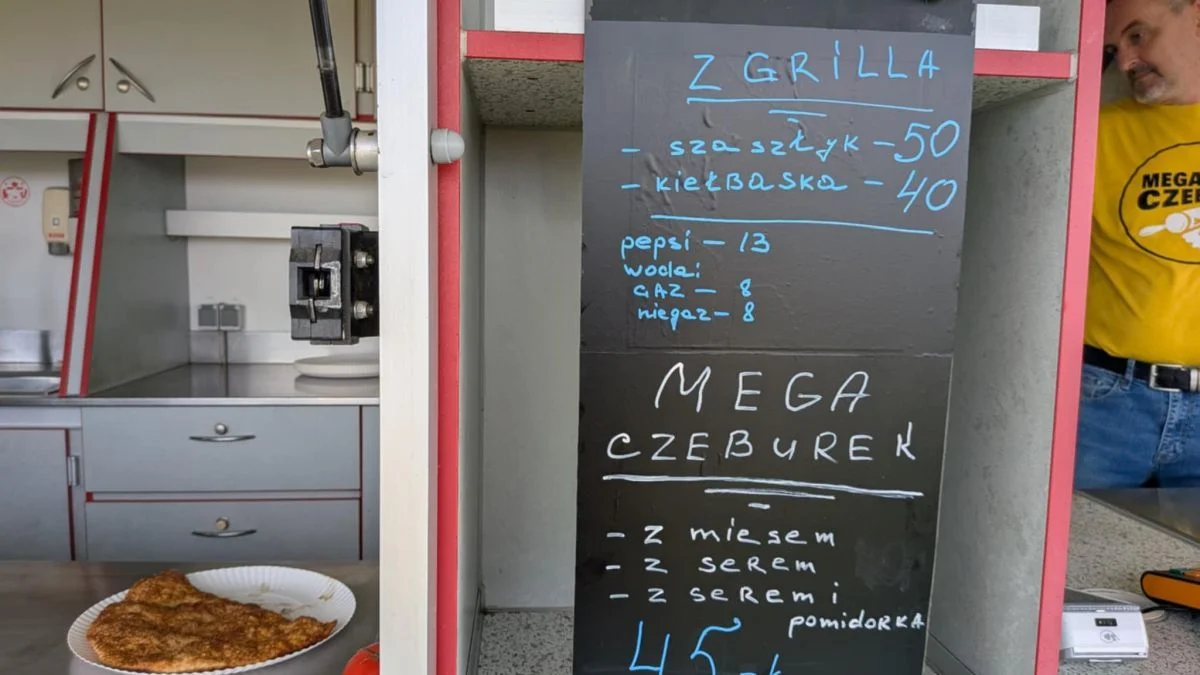 Z GRiLLA
- szaszłyk - 50
- kiełBaska - 40
pepsi - 13
wodai
GAZ - 8
niegaz - 8
MEGA
CZEBUREK
- z miesem
- z serem
- z serem i
pomidorka
45
MEGA
CZEB